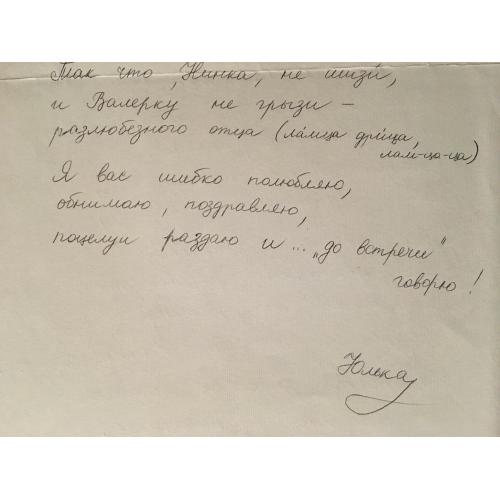 Так что, Нинка, не шизи,
и Валерку не грызи –
разлюбезного отца (ла́мца дри́ца,
лам-ца-ца)
Я вас шибко полюбляю,
обнимаю, поздравляю,
поцелуи раздаю и ... „до встречи"
говорю!
Юлька